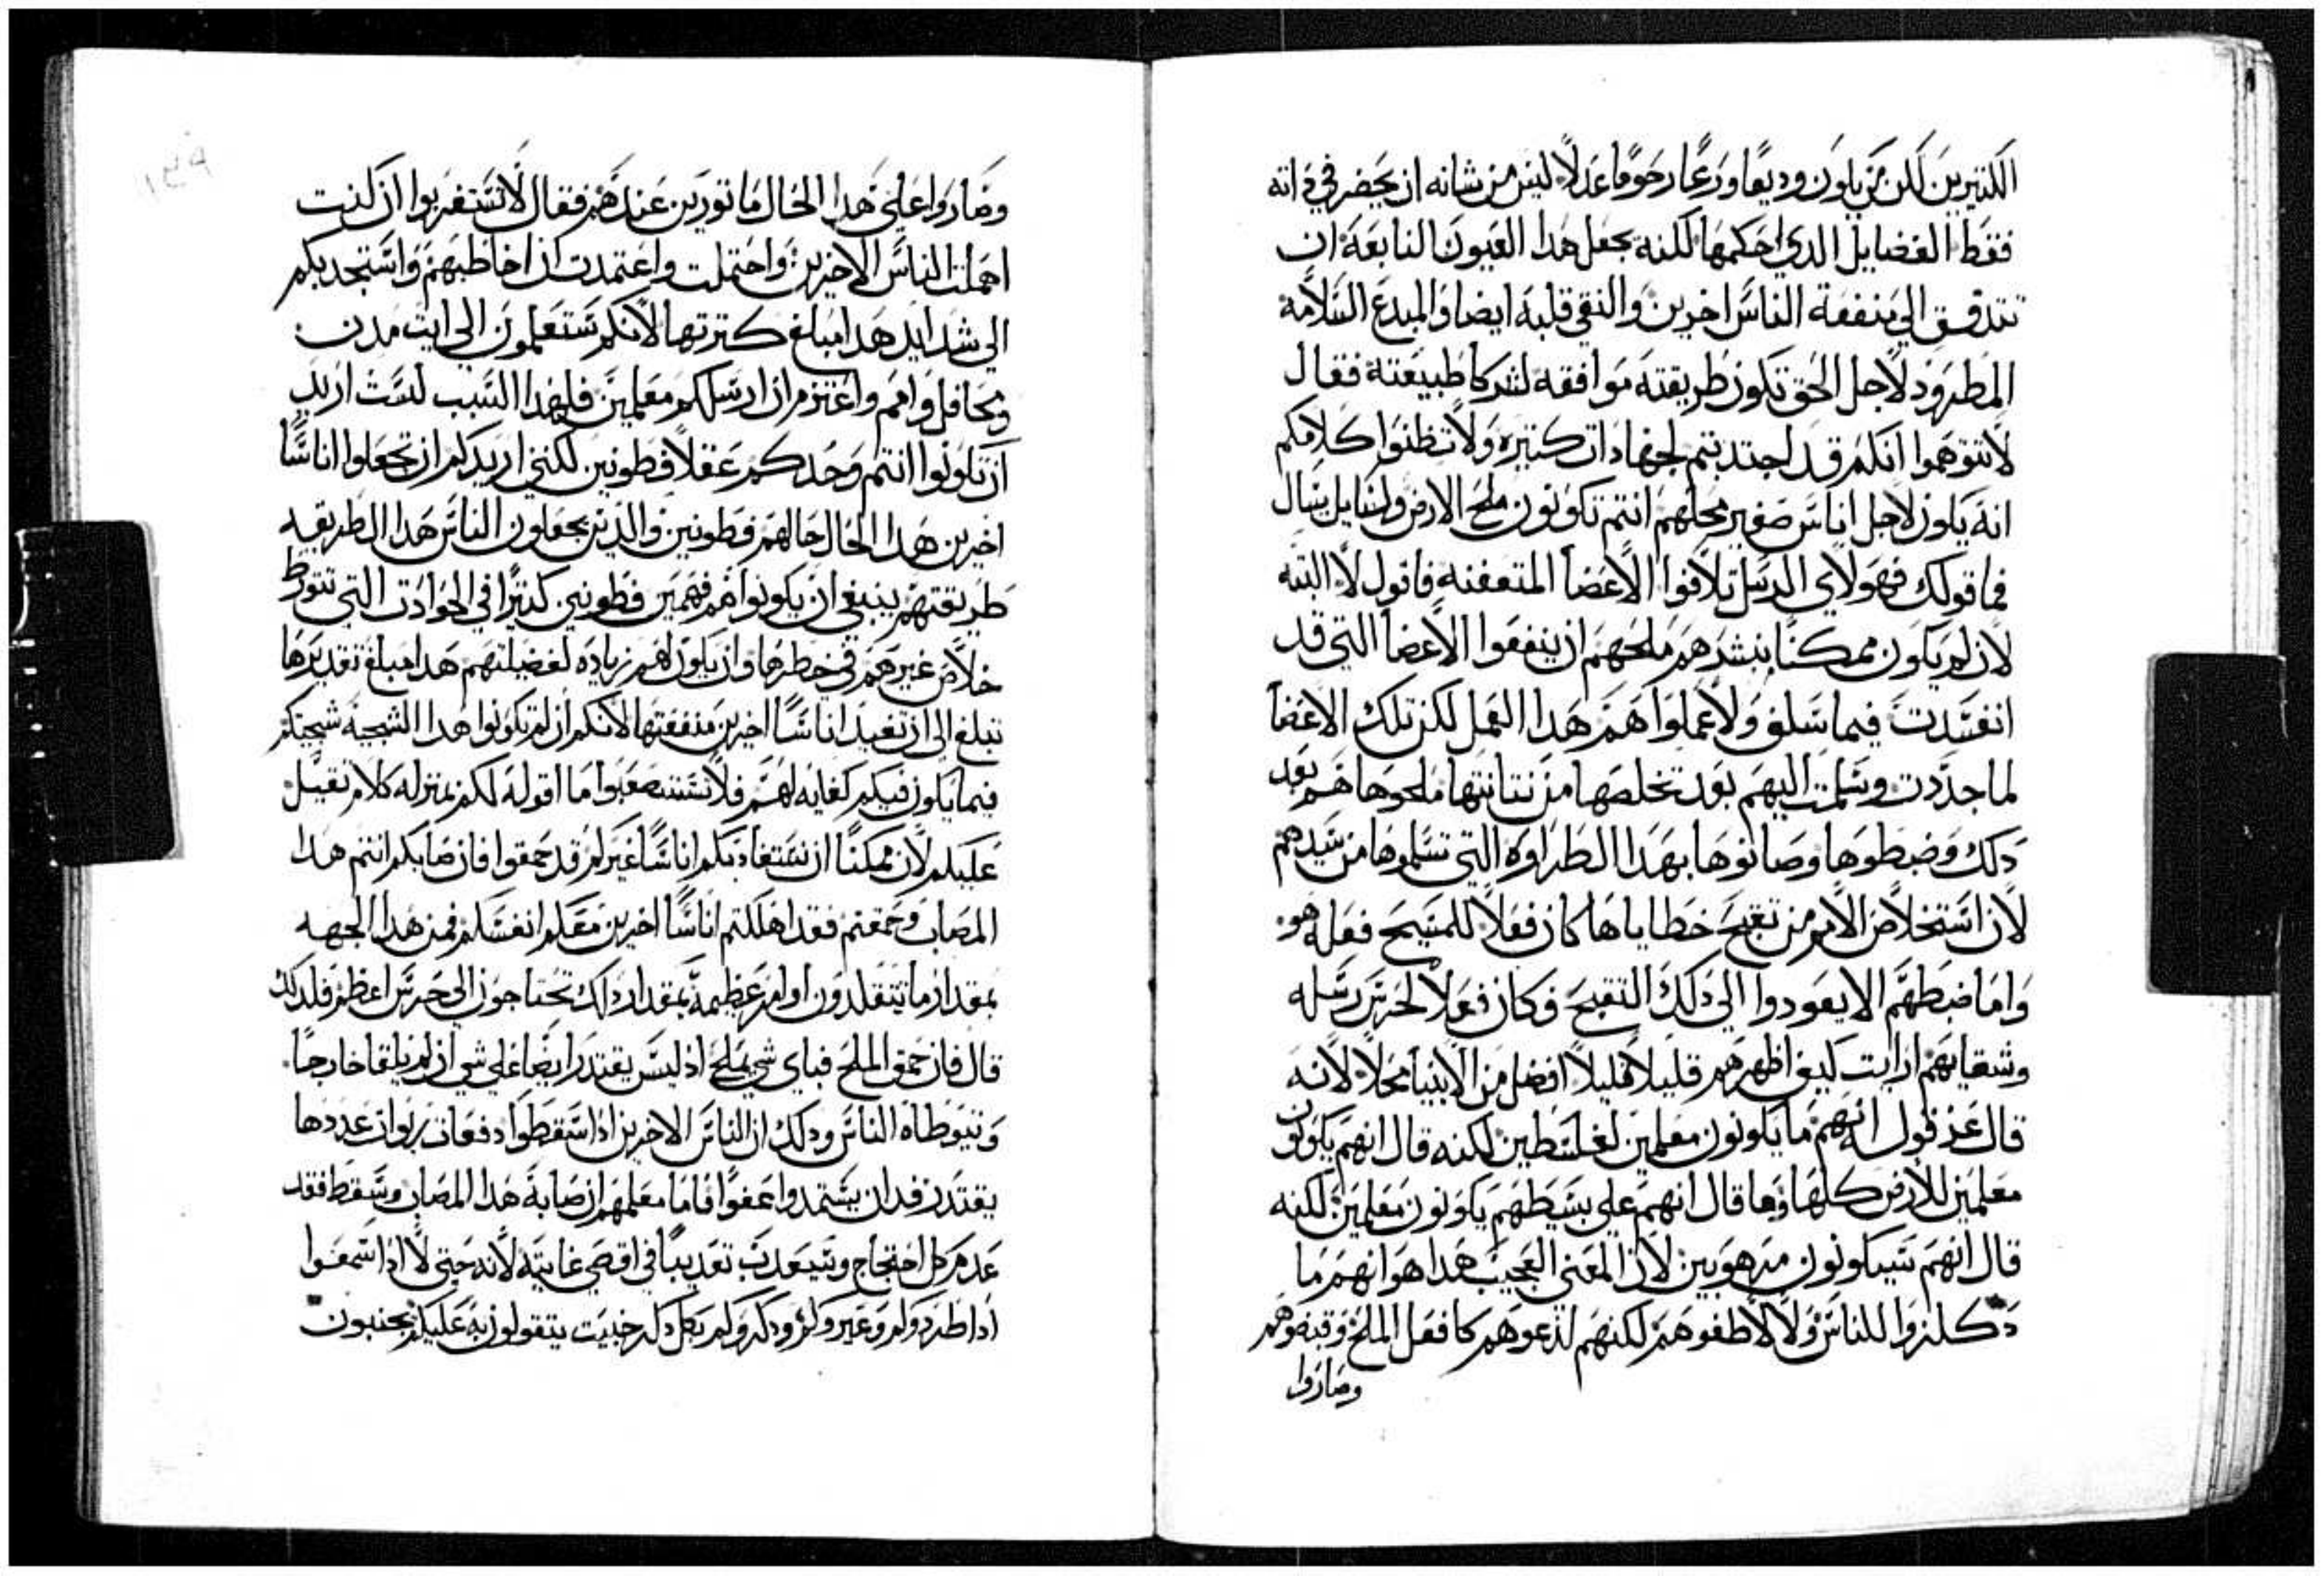 الكتيرين لكن من يكون وديعًا ورعًا رحومًا عدلاً ليس من شانه ان يحضر في داته
فقط الفضايل الدي احكمها لكنه يجعل هدا العيون النابعة ان
تتدفق الي منفعة الناس اخرين والنقي قلبه ايضا والمبدع السلامه
المطرود لاجل الحق تكون طريقته موافقه لشركا طبيعته فقال
لا تتوهموا انكم قد اجتدبتم لجهادات كتيره ولا تظنوا كلامكم
انه يكون لاجل اناس صغير محلهم انتم تكونون ملح الارض ولسايل يسال
فما قولك فهولاي الرسل تلافوا الاعضا المتعفنه فاقول لا البته
لان لم يكون ممكنًا بنشرهم ملحهم ان ينفعوا الاعضا التي قد
انفسدت فيما سلف ولا عملوا هم هدا العمل لكن تلك الاعضا
لما جددت وسلمت اليهم بعد تخلصها من نتانتها ملحوها هم بعد
دلك وضبطوها وصانوها بهدا الطراوه التي تسلموها من سيدهم
لان استخلاص الامم من تقيح خطاياها كان فعلاً للمسيح فعله هو
واما ضبطهم الا يعودوا الي دلك التقيح فكان فعلاً لحرس رسله
وشقايهم ارايت كيف اظهرهم قليلاً قليلاً افضل من الانبيا محلاً لانه
قال عز قول انهم ما يكونون معلمين لفلسطين لكنه قال انهم يكونون
معلمين للارض كلها وما قال انهم علي بسيطهم يكونون معلمين لكنه
قال انهم سيكونون مرهوبين لان المعني العجيب هدا هو انهم ما
دكلزوا للناس ولا لاطفوهم لكنهم لدعوهم كما فعل الملح وقبضوهم
وصاروا
وصاروا علي هدا الحال ماتورين عندهم فقال لا تستغربوا ان كنت
اهملت الناس الاخرين واحتملت واعتمدت ان اخاطبهم واستجد بكم
الي شدايد هدا مبلغ كترتها لانكم ستعلمون الي ايت مدن
ومحافل وامم واعتزم ان ارسلكم معلمين فلهدا السبب لست اريد
ان تكونوا انتم وحدكم عقلاً فطونين لكنني اريدكم ان تجعلوا اناسًا
اخرين هدا الحال حالهم فطونين والدين يجعلون الناس هدا الطريقه
طريقتهم ينبغي ان يكونوا هم فهمين فطونين كتيرًا في الحوادت التي تتورط
خلاص غيرهم في خطرها وان يكون لهم زياده لفضيلتهم هدا مبلغ تقديرها
تبلغ الي ان تفيد اناسًا اخرين منفعتها لانكم ان لم تكونوا هدا الشجيه شجيتكم
فما يكون فيكم كفايه لهم فلا تستصعبوا ما اقوله لكم بمنزله كلام تقيل
عليكم لان ممكنًا ان يستفاد بكم اناسًا غيركم قد حمقوا فان صابكم انتم هدا
المصاب وحمقتم فقد اهلكتم اناسًا اخرين معكم انفسكم فمن هدا الجهه
بمقدار ما تتقلدون اوامر عظيمة بمقدار دلك تحتاجون الي حرس اعظم فلدلك
قال فان حمق الملح فباي شي يملح اد ليس يقتدر ايضا علي شي ان لم يلقا خارجًا
وتتوطاه الناس ودلك ان الناس الاخرين ادا سقطوا دفعات ربوات عددها
يقتدرون ان يستمدوا عفوًا فاما معلمهم ان صابه هدا المصاب وسقط فقد
عدم كل احتجاج وسيعدب تعديبًا في اقصي غايته لانه حتي لا ادا سمعوا
ادا طردوكم وعيروكم ودكروكم بكل دكر خبيت يتقولون به عليكم يجنبون